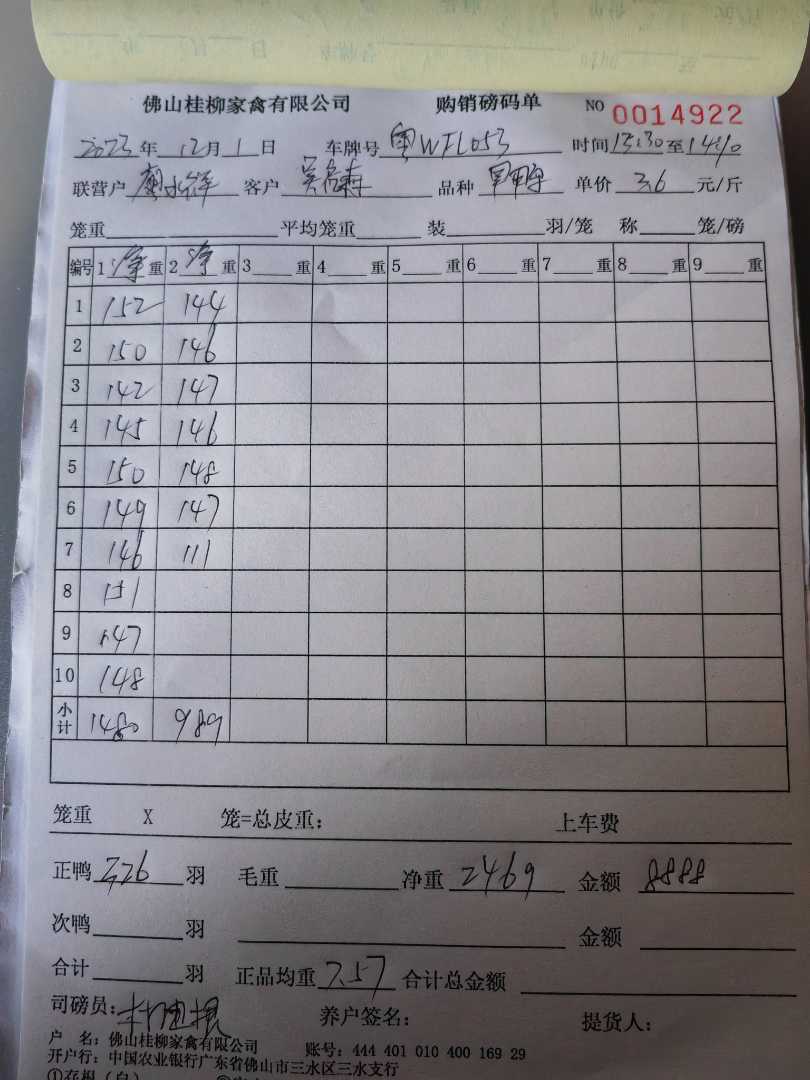 佛山桂柳家禽有限公司 购销磅码单 NO 0014922
2023年 12月 1日 车牌号 粤WFL053 时间13:30至14:10
联营户 客户 品种 单价 3.6 元/斤
笼重 平均笼重 装 羽/笼 称 笼/磅
编号 1净重 2净重 3 重 4 重 5 重 6 重 7 重 8 重 9 重
1 152 144
2 150 146
3 142 147
4 145 146
5 150 148
6 149 147
7 146 111
8 151
9 147
10 148
小计 1480 989
笼重 X 笼=总皮重: 上车费
正鸭 326 羽 毛重 净重 2469 金额 8888
次鸭 羽 金额
合计 羽 正品均重 7.57 合计总金额
司磅员: 养户签名: 提货人:
户 名: 佛山桂柳家禽有限公司 账号: 444 401 010 400 169 29
开户行: 中国农业银行广东省佛山市三水区三水支行
①存根(白)